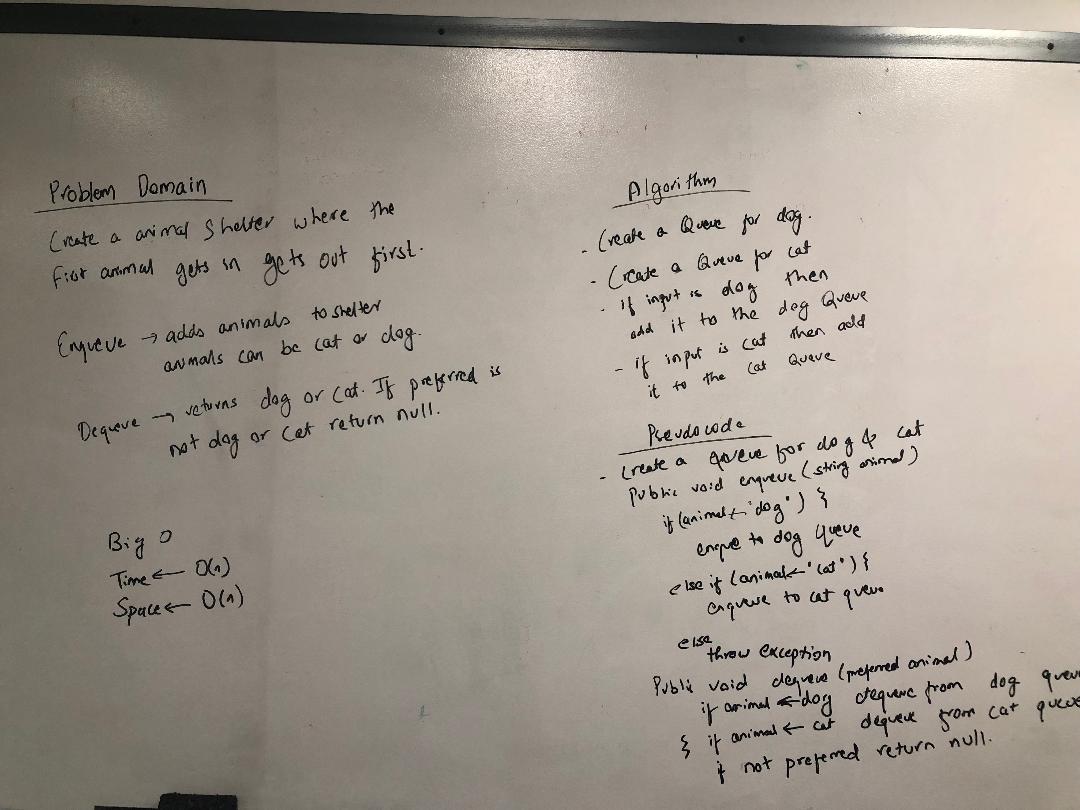 Problem Domain
Create a animal Shelter where the
first animal gets in gets out first.
Enqueue → adds animals to shelter
animals can be cat or dog.
Dequeue → returns dog or cat. If preferred is
not dog or cat return null.
Big O
Time ← O(1)
Space ← O(1)
Algorithm
- Create a Queue for dog.
- Create a Queue for cat
- if input is dog then
add it to the dog Queue
- if input is cat then add
it to the cat Queue
Pseudocode
- Create a queue for dog & cat
Public void enqueue (string animal)
if (animal ← "dog") {
enque to dog Queue
else if (animal ← "cat") {
enqueue to cat queue
else
throw exception
Public void dequeue (preferred animal)
if animal ← dog dequeue from dog queue
} if animal ← cat dequeue from cat queue
if not preferred return null.